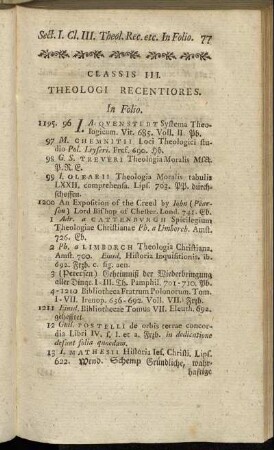 Sect. I. Cl. III. Theol. Rec. etc. In Folio. 77
CLASSIS III.
THEOLOGI RECENTIORES.
In Folio.
1195. 96 I. A. QVENSTEDT Systema Theo-
logicum. Vit. 685. Voll. II. Pb.
97 M. CHEMNITII Loci Theologici stu-
dio Pol. Lyseri. Frcf. 690. Hb.
98 G. S. TREVERI Theologia Moralis Msct.
P. R. E.
99 I. OLEARII Theologia Moralis tabulis
LXXII, comprehensa. Lips. 703. PP. durch-
schossen.
1200 An Exposition of the Creed by Iohn (Pear-
son) Lord Bishop of Chester. Lond. 741. Eb.
1 Adr. a CATTENBURGH Spicilegium
Theologiae Christianae Pb. a Limborch. Amst.
726. Eb.
2 Pb. a LIMBORCH Theologia Christiana.
Amst. 700. Eiusd. Historia Inquisitionis. ib.
692. Frzb. c. fig. aen.
3 (Petersen) Geheimniß der Wiederbringung
aller Dinge. I-III. Th. Pamphil. 701-710. Pb.
4-1210 Bibliotheca Fratrum Polonorum. Tom.
I-VII. Irenop. 656-692. Voll. VII. Frzb.
1211 Eiusd. Bibliothecae Tomus VII. Eleuth. 692.
geheftet.
12 Guil. POSTELLI de orbis terrae concor-
dia Libri IV. s. l. et a. Frzb. in dedicatione
desunt folia quaedam.
13 I. MATHESII Historia Ies. Christi. Lips.
622. Wend. Schemp Gründliche, wahr-
haftige